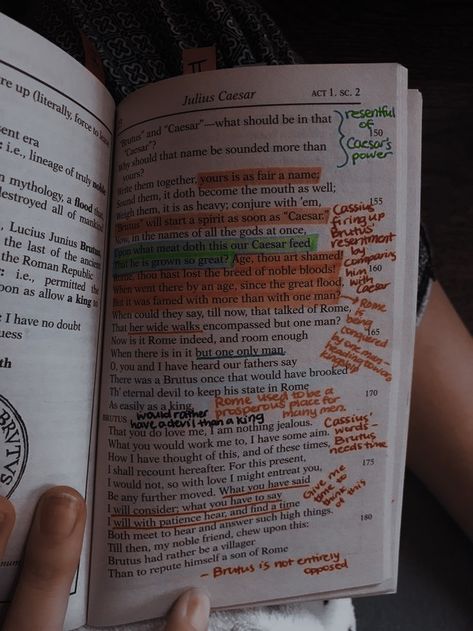 re up (literally, force to leave
sent era
i.e., lineage of truly noble
n mythology, a flood that
destroyed all of mankind
Lucius Junius Brutus,
the last of the ancient
the Roman Republic
i.e., permitted
oon as allow a king to
I have no doubt
uess
th
BRVTVS
II
Julius Caesar
ACT 1. SC. 2
"Brutus" and "Caesar"—what should be in that
"Caesar"?
150
Why should that name be sounded more than
yours?
Write them together, yours is as fair a name;
Sound them, it doth become the mouth as well;
Weigh them, it is as heavy; conjure with 'em,
155
"Brutus" will start a spirit as soon as "Caesar."
Now, in the names of all the gods at once,
Upon what meat doth this our Caesar feed
That he is grown so great? Age, thou art shamed!
Rome, thou hast lost the breed of noble bloods!
When went there by an age, since the great flood,
But it was famed with more than with one man?
When could they say, till now, that talked of Rome,
That her wide walks encompassed but one man?
165
Now is it Rome indeed, and room enough
When there is in it but one only man.
O, you and I have heard our fathers say
There was a Brutus once that would have brooked
Th' eternal devil to keep his state in Rome
170
As easily as a king.
BRUTUS
That you do love me, I am nothing jealous.
What you would work me to, I have some aim.
How I have thought of this, and of these times,
I shall recount hereafter. For this present,
175
I would not, so with love I might entreat you,
Be any further moved. What you have said
I will consider; what you have to say
I will with patience hear, and find a time
Both meet to hear and answer such high things.
180
Till then, my noble friend, chew upon this:
Brutus had rather be a villager
Than to repute himself a son of Rome
resentful
of
Caesar's
power
Cassius
firing up
Brutus'
resentment
by
comparing
him
with
Caesar
→ Rome
is
being
conquered
by one man—
heading towards
Rome used to be a
prosperous place for
many men.
would rather
have a devil than a king
Cassius'
words—
Brutus
needs time
Give me
time to
think
of this
- Brutus is not entirely
opposed